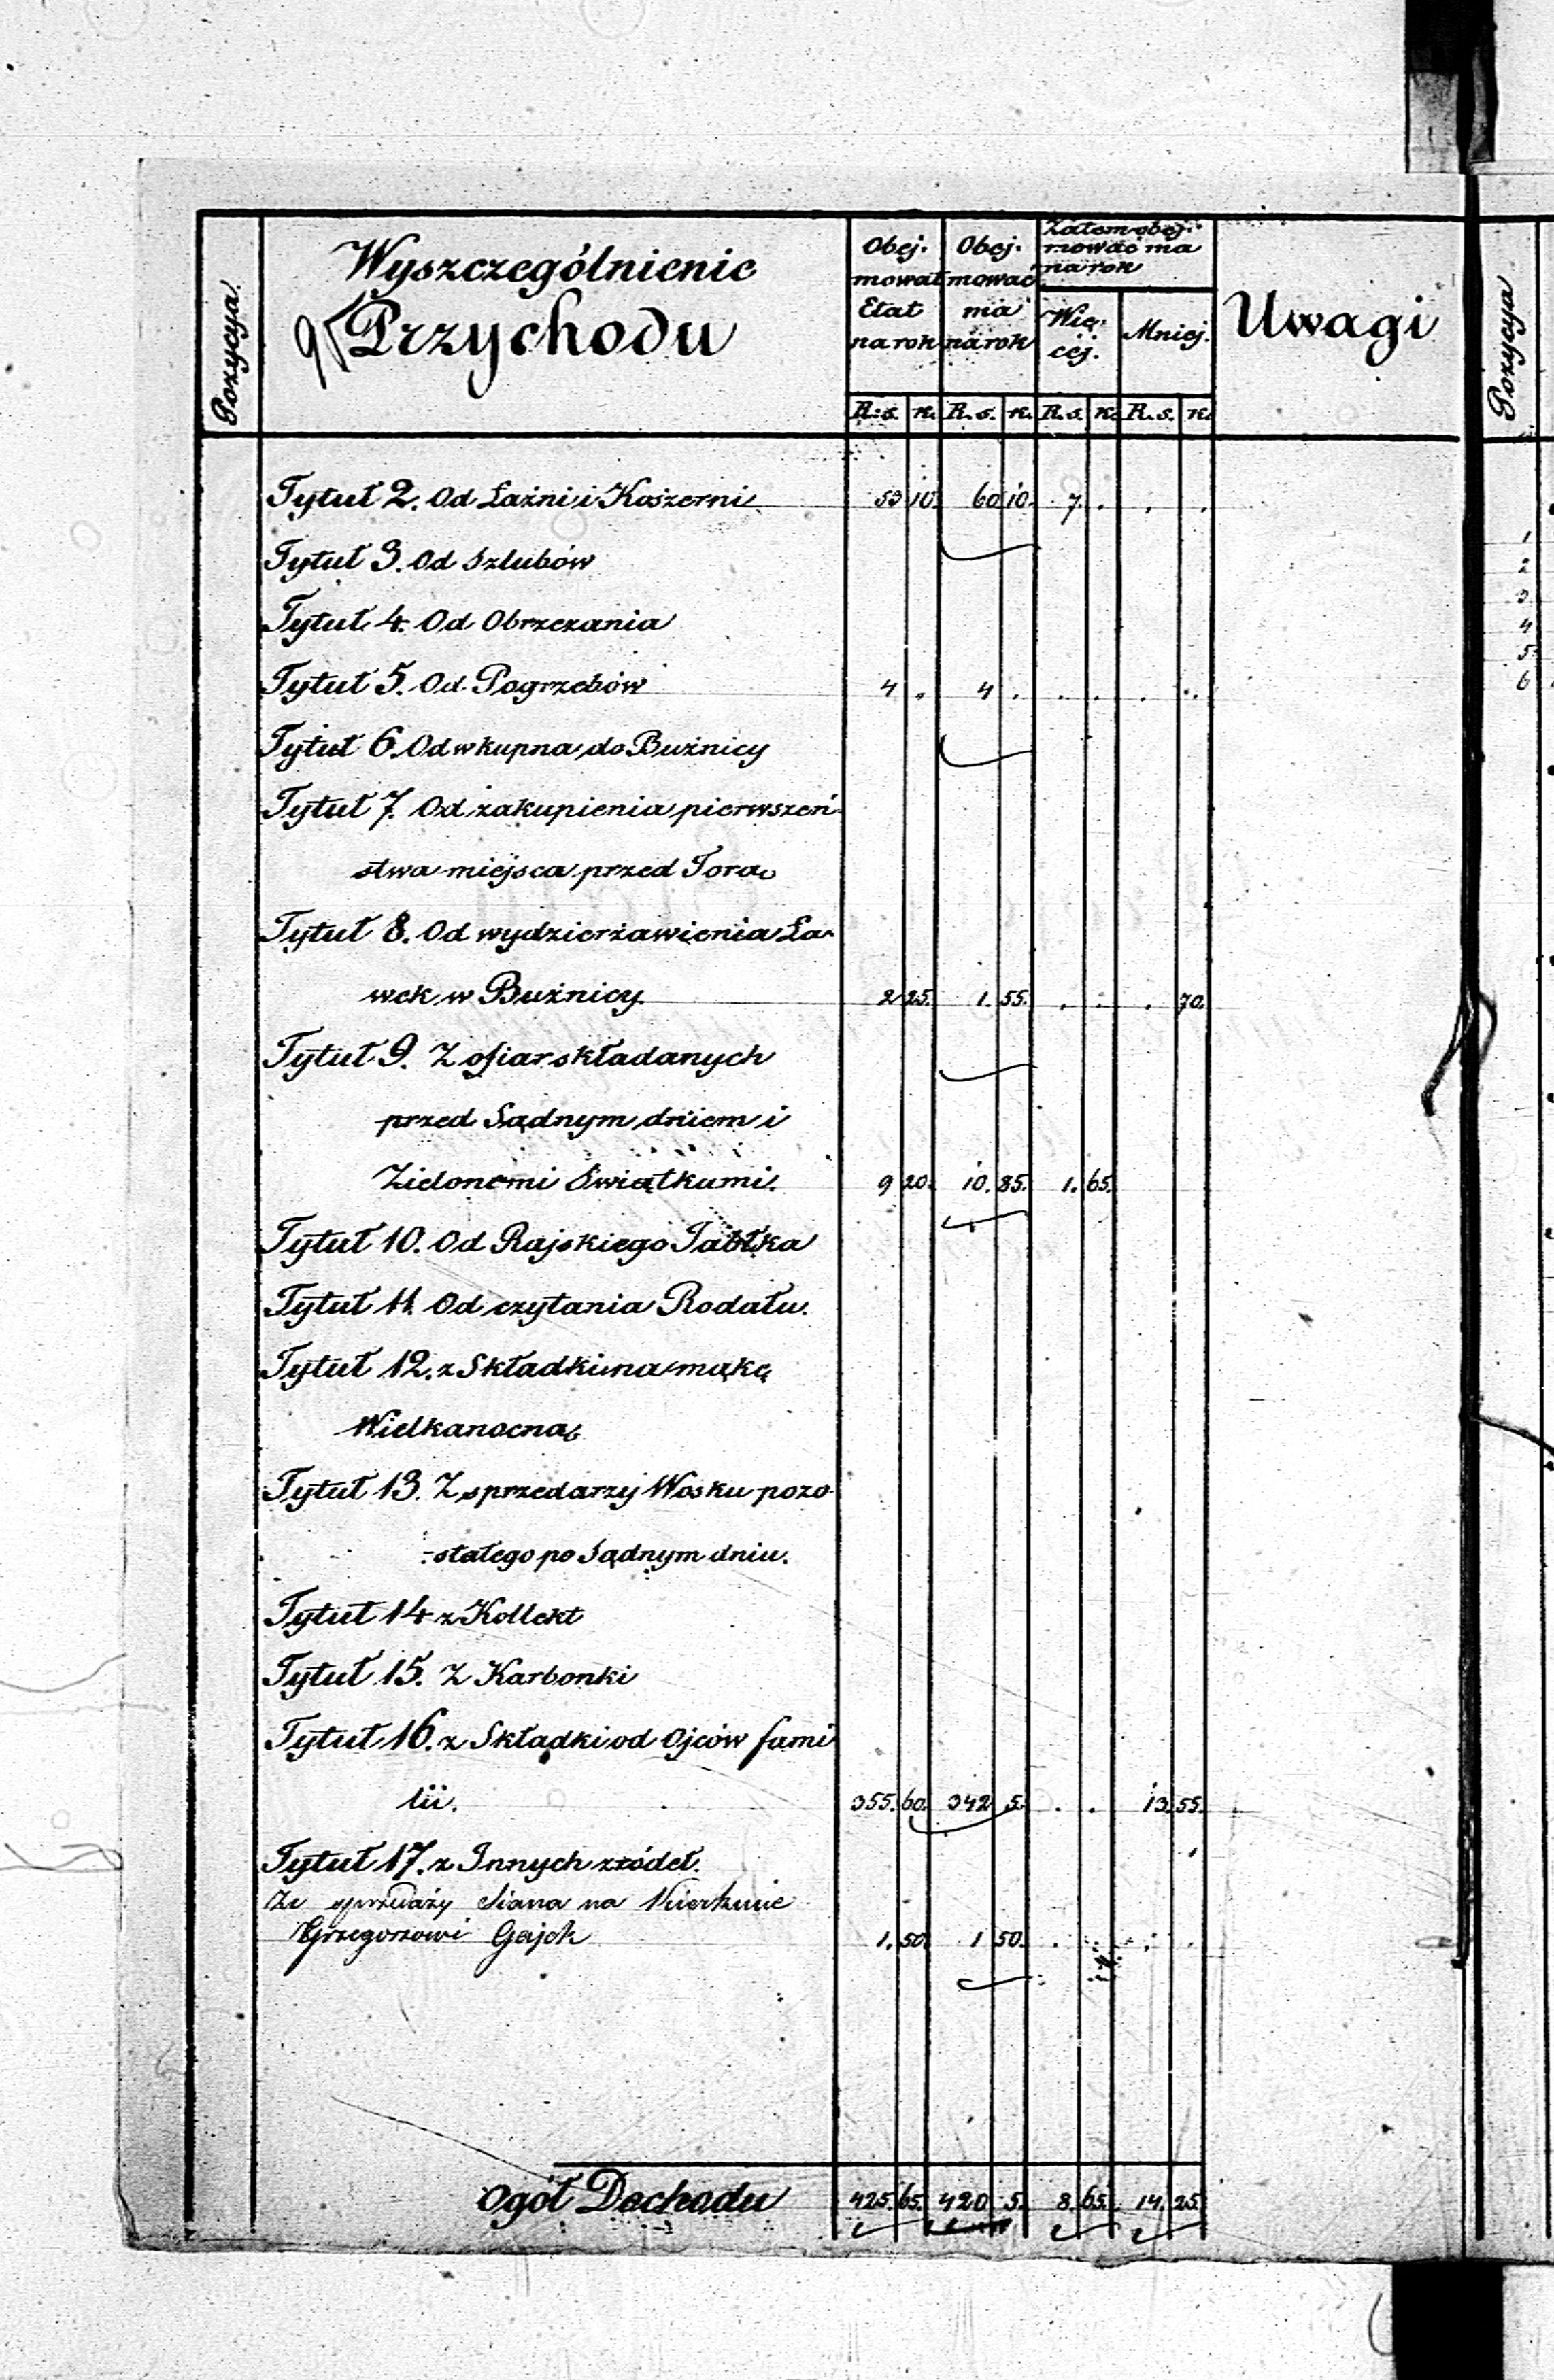 Pozycya.
Wyszczególnienie
Przychodu
Obej-
mował
Etat
na rok
Obej-
mować
ma
na rok
Zatem obej-
mować ma
na rok
Wię-
cej.
Mniej.
Uwagi
Pozycya
R. s. k. R. s. k. R. s. k. R. s. k.
Tytuł 2. Od Łaźni i Koszerni 53 10. 60 10. 7. . . .
Tytuł 3. Od Szlubów
Tytuł 4. Od Obrzezania
Tytuł 5. Od Pogrzebów 4 . 4 . . . . .
Tytuł 6. Od wkupna do Bużnicy
Tytuł 7. Od zakupienia pierwszeń-
stwa miejsca przed Torą
Tytuł 8. Od wydzierżawienia Ła-
wek w Bużnicy. 2 25. 1. 55. . . . 70.
Tytuł 9. Z ofiar składanych
przed Sądnym dniem i
Zielonemi Świątkami. 9 20. 10. 85. 1. 65.
Tytuł 10. Od Rajskiego Jabłka
Tytuł 11. Od czytania Rodału.
Tytuł 12. z Składki na mąkę
Wielkanocną
Tytuł 13. Z sprzedarzy Wosku pozo-
stałego po Sądnym dniu.
Tytuł 14 z Kollekt
Tytuł 15. Z Karbonki
Tytuł 16. z Składki od Ojców fami
lii. 355. 60. 342 5. . . 13. 55.
Tytuł 17. z Innych źródeł.
Ze sprzedaży Siana na Kierkucie
Grzegorzowi Gajek 1. 50. 1 50. . . . .
Ogół Dochodu 425. 65. 420 5. 8. 65. 14. 25.
1
2
3
4
5
6